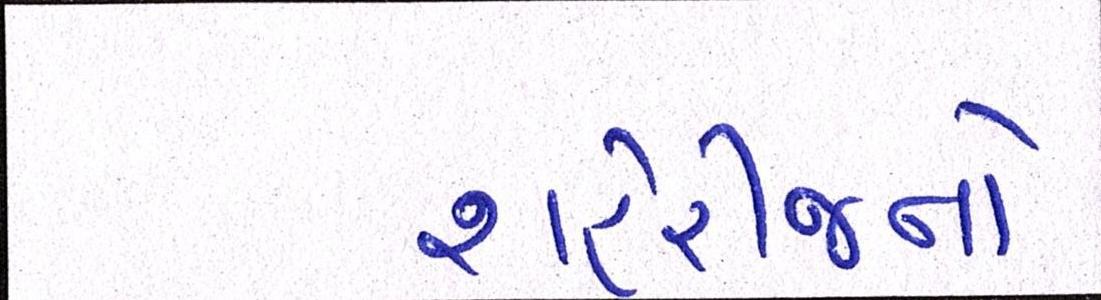 શહેરીજનો